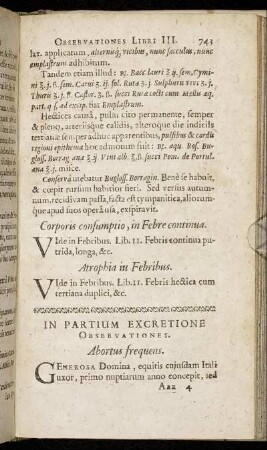 OBSERVATIONES LIBRI III. 743
lat. applicatum, alternisq́; vicibus, nunc sacculus, nunc
emplastrum adhibitum.
Tandem etiam illud: ℞. Bacc lauri ʒ ij. sem. Cymi-
ni ʒ. j. ß. sem. Carui ʒ. ij. fol. Ruta ʒ. j. Sulphuris vivi ʒ. s.
Thuris ʒ. j. ß. Castor. ʒ. ß. succi Rutæ cocti cum Mellis aq.
part. q s. ad excip. fiat Emplastrum.
Hecticæ causâ, pulsu cito permanente, semper
& pleno, arteriisque calidis, alteroque die indiciis
tertianæ semper adhuc apparentibus, pulsibus & cordis
regioni epithema hoc admotum fuit: ℞. aqu. Ros. Bu-
gloss. Borrag ana ʒ. ij. Vini alb. ʒ. ß. succi Pom. de Portul.
ana ʒ j. misce.
Conservâ utebatur Bugloss. Borragin. Benè se habuit,
& cœpit rursum habitior fieri. Sed versus autum-
num, recidivam passa, facta est tympanitica, aliorum-
que apud suos operâ usa, expiravit.
Corporis consumptio, in Febre continua.
VIde in Febribus. Lib. II. Febris continua pu-
trida, longa, &c.
Atrophia in Febribus.
VIde in Febribus. Lib. II. Febris hectica cum
tertiana duplici, &c.
IN PARTIUM EXCRETIONE
OBSERVATIONES.
Abortus frequens.
GENEROSA Domina, equitis cujusdam Itali
uxor, primo nuptiarum anno concepit, sed
Aaa 4